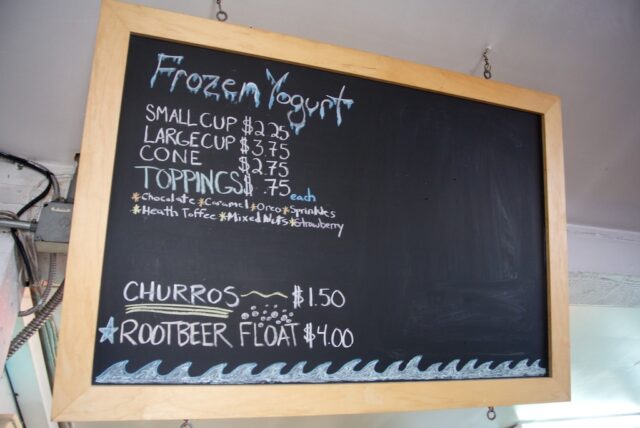 Frozen Yogurt
SMALL CUP $2.25
LARGE CUP $3.75
CONE $2.75
TOPPINGS $.75 each
*Chocolate *Caramel *Oreo *Sprinkles
*Heath Toffee *Mixed Nuts *Strawberry
CHURROS $1.50
ROOTBEER FLOAT $4.00